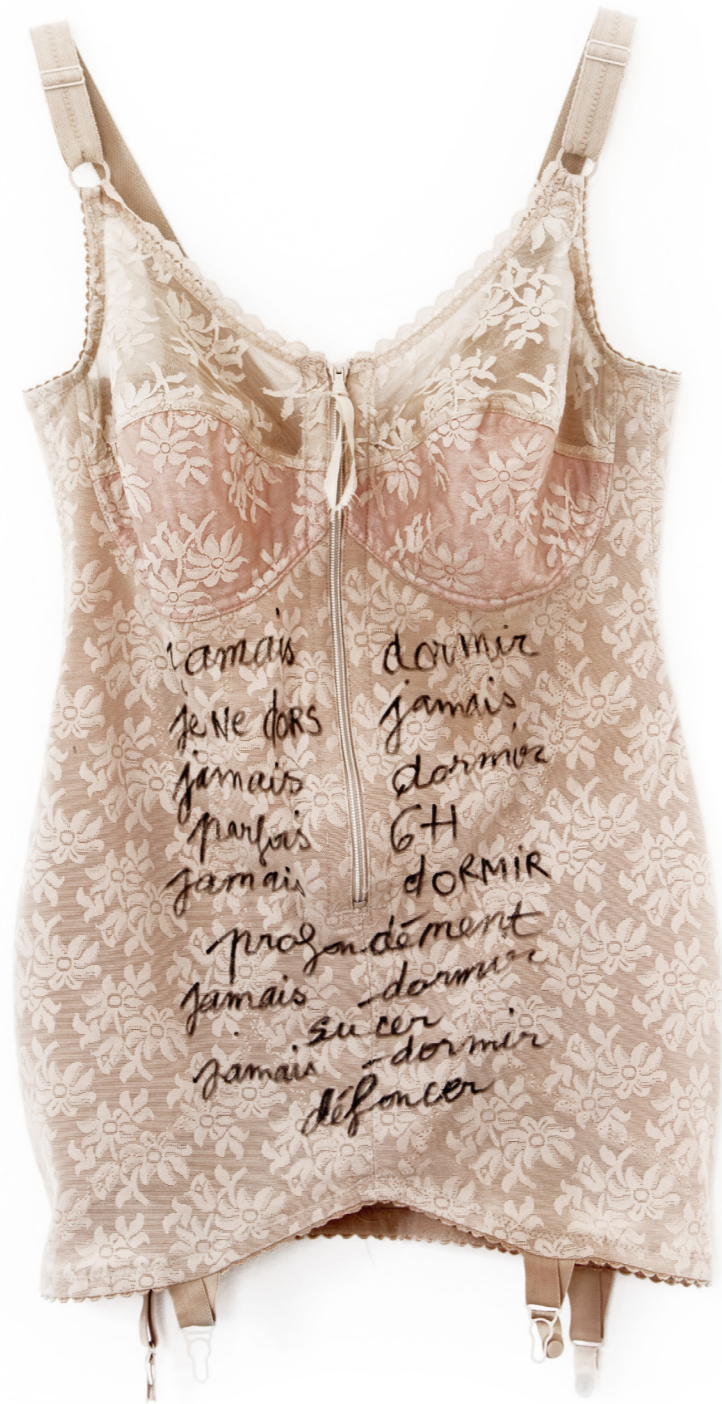 jamais dormir
je Ne dORS jamais
jamais dormir
parfois 6H
jamais dORMIR
profondément
jamais -dormir
sucer
jamais -dormir
défoncer